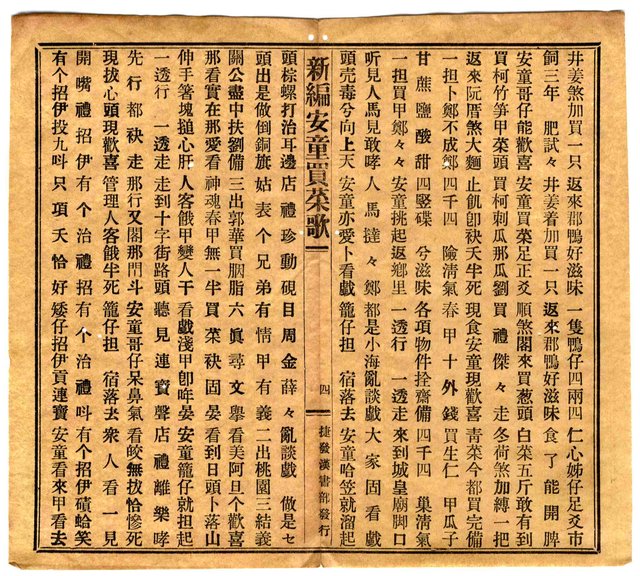 井姜煞加買一只 返來郡鴨好滋味 一隻鴨仔四兩四 仁心姊仔足爻市
飼三年 肥試々 井姜着加買一只 返來郡鴨好滋味 食了能開脾
安童哥仔能歡喜 安童買菜足正爻 順煞閣來買葱頭 白菜五斤敢有到
買柯竹笋甲菜頭 買柯刺瓜那瓜劉 買禮傑々走 冬荷煞加縛一把
返來阮厝煞大麵 止飢卽袂夭半死 現食安童現歡喜 青菜今都買完備
一担卜鄭不成鄭 四千四 險清氣 春甲十外錢 買生仁 甲瓜子
甘蔗鹽酸甜 四豎碟 兮滋味 各項物件拴齊備 四千四 巢清氣
一担買甲鄭々々 安童挑起返鄉里 一透行 一透走 來到城皇廟脚口
聽見人馬見敢哮 人馬撻々鄭 都是小海亂談戲 大家固看戲
頭壳毒兮向上天 安童亦愛卜看戲 籠仔担 宿落去 安童哈笠就溜起
新編安童買菜歌 四 捷發漢書部發行
頭棕螺打治耳邊 店禮珍動硯 目周金薛々 亂談戲 做是セ
頭出是做倒銅旗 姑表个兄弟 有情甲有義 二出桃園三結義
關公盡中扶劉備 三出郭華買胭脂 六眞尋文擧 看美阿旦个歡喜
那看實在那愛看 神魂春甲無一半 買菜袂固晏 看到日頭卜落山
伸手箸塊搥心肝 人客餓甲變人干 看戲淺甲卽哖晏 安童籠仔就担起
一透行 一透走 走到十字街路頭 聽見連寶聲 店禮離樂哮
先行都袂走 那行又閣那閗斗 安童哥仔呆鼻氣 看皎無拔恰慘死
現拔心頭現歡喜 管理人客餓半死 籠仔担 宿落去 衆人看一見
開嘴禮招伊 有个治禮招 有个治禮呌 有个招伊磧蛤笑
有个招伊投九呌 只項夭恰好 矮仔招伊貢連寶 安童看來甲看去